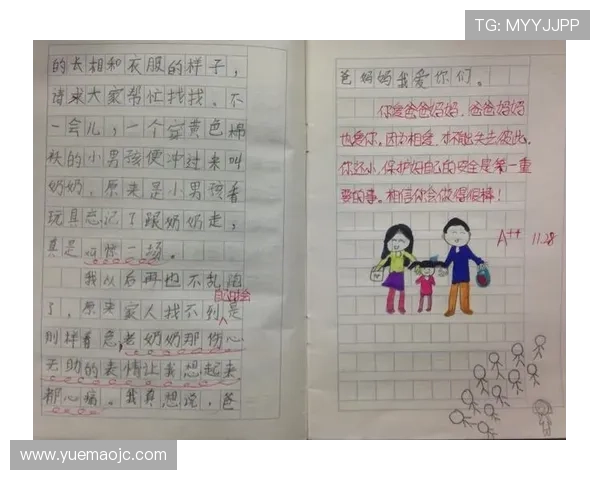 TG: MYYJJPP
的长相和衣服的样子，
请来大家帮忙找找。不
一会儿，一个穿黄色棉
袄的小男孩便冲过来叫
奶奶，原来是小男孩看
玩具忘记了跟奶奶走，
真是虚惊一场。
我以后再也不乱跑
自己时会
了，原来家人找不到是
那样着急，老奶奶那伤心
无助的表情让我想起来
都心痛。我真想说，爸
爸妈妈我爱你们。
你爱爸爸妈妈，爸爸妈妈
也爱你。因为相爱，才不能失去彼此。
你还小，保护好自己的安全是第一重
要的事。相信你会做得很棒！
A++ 11.28
www.yuemaojc.com